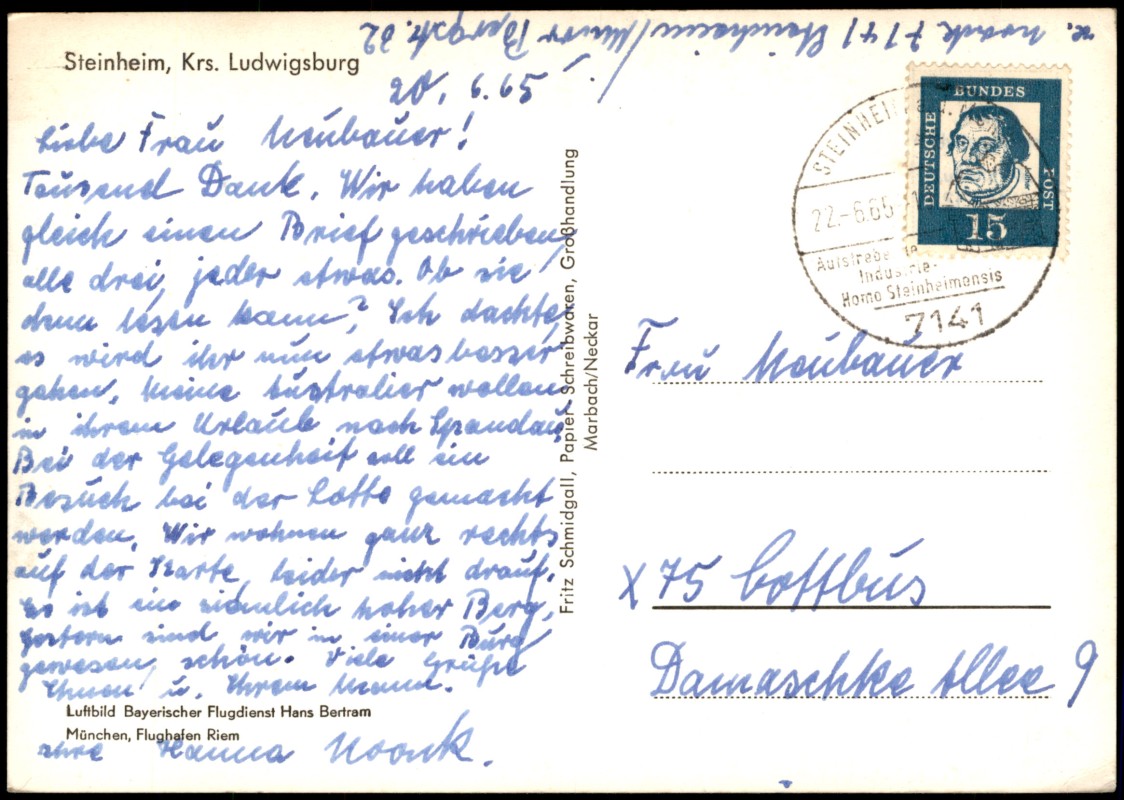 Steinheim, Krs. Ludwigsburg
7141 Steinheim/Murr Bergstr. 32
20. 6. 65
Liebe Frau Neubauer!
Tausend Dank. Wir haben
gleich einen Brief geschrieben,
alle drei, jeder etwas. Ob sie
denn lesen kann? Ich dachte,
es wird ihr nun etwas besser
gehen. Meine Australier wollen
in ihrem Urlaub nach Spandau.
Bei der Gelegenheit soll ein
Besuch bei der Lotte gemacht
werden. Wir wohnen ganz rechts
auf der Karte, leider nicht drauf.
Es ist ein ziemlich hoher Berg,
gestern sind wir in einer Burg
gewesen, schön. Viele Grüße
Ihnen u. Ihrem Mann.
Luftbild Bayerischer Flugdienst Hans Bertram
München, Flughafen Riem
Ihre Hanna Noack.
Fritz Schmidgall, Papier-Schreibwaren, Großhandlung
Marbach/Neckar
DEUTSCHE BUNDES POST
15
STEINHEIM
22.-6.65
Aufstrebende
Industrie-
Homo Steinheimensis
7141
Frau Neubauer
X75 Cottbus
Damaschke Allee 9